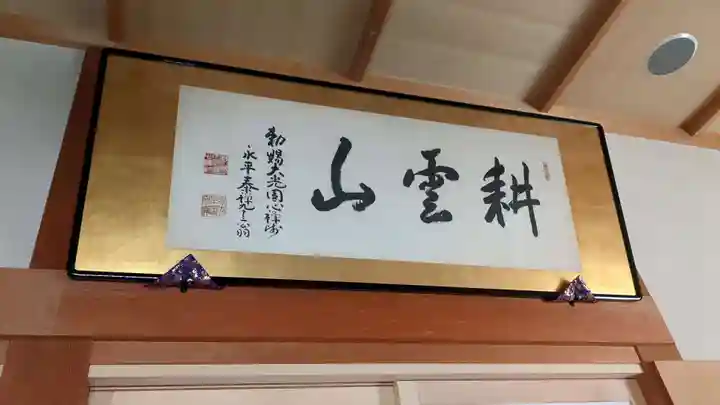 耕雲山
勅賜大光圓心禅師
永平泰禅之翁